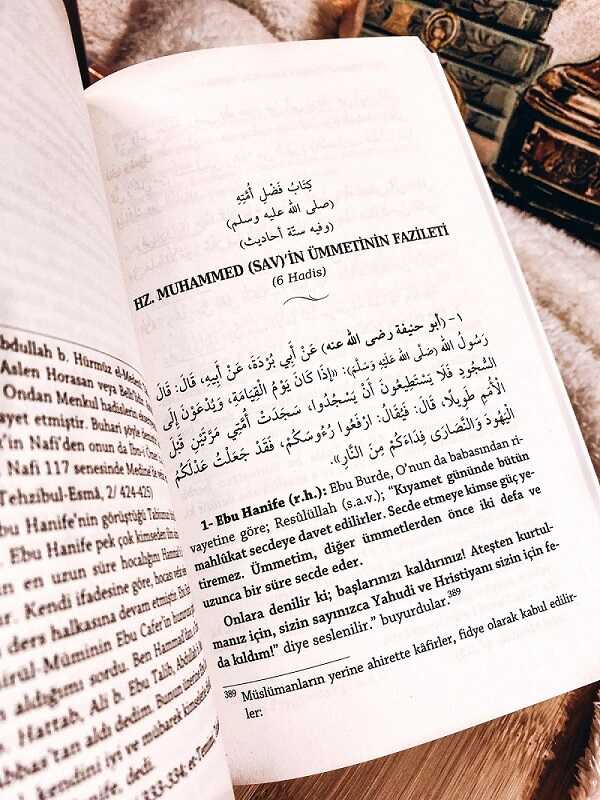 bdullah b. Hürmüz el-Medenî
Aslen Horasan veya Belh
Ondan Menkul hadislerin
ayet etmiştir. Buhari şöyle
k'in Nafi'den onun da İbn-i
Nafi 117 senesinde Medine'de
Tehzîbul-Esmâ, 2/ 424-425)
bu Hanife'nin görüştüğü
Ebu Hanife pek çok kimseden
n en uzun süre hocalığını Hammad
r. Kendi ifadesine göre, hocası
n ders halkasına devam etmiştir.
irül-Müminin Ebu Cafer'in huzuruna
n aldığımı sordu. Ben Hammad'dan
b. Hattab, Ali b. Ebu Talib, Abdullah b.
Abbas'tan aldı dedim. Bunun üzerine
kendini iyi ve mübarek kimselerle
anife, dedi.
333-334;
كِتَابُ فَضْلِ أُمَّتِهِ
(صلى الله عليه وسلم)
(وفيه ستّة أحاديث)
HZ. MUHAMMED (SAV)'İN ÜMMETİNİN FAZİLETİ
(6 Hadis)
١- (أبو حنيفة رضى الله عنه) عَنْ أَبِي بُرْدَةَ، عَنْ أَبِيهِ، قَالَ: قَالَ
رَسُولُ اللهِ (صلَّى اللهُ عَلَيْهِ وَسَلَّمَ): «إِذَا كَانَ يَوْمُ الْقِيَامَةِ، وَيُدْعَوْنَ إِلَى
السُّجُودِ فَلَا يَسْتَطِيعُونَ أَنْ يَسْجُدُوا، سَجَدَتْ أُمَّتِي مَرَّتَيْنِ قَبْلَ
الْأُمَمِ طَوِيلًا، قَالَ: فَيُقَالُ: ارْفَعُوا رُءُوسَكُمْ، فَقَدْ جَعَلْتُ عَدْلَكُمْ
الْيَهُودَ وَالنَّصَارَى فِدَاءَكُمْ مِنَ النَّارِ».
1- Ebu Hanife (r.h.); Ebu Burde, O'nun da babasından ri-
vayetine göre; Resûlüllah (s.a.v.); "Kıyamet gününde bütün
mahlûkat secdeye davet edilirler. Secde etmeye kimse güç ye-
tiremez. Ümmetim, diğer ümmetlerden önce iki defa ve
uzunca bir süre secde eder.
Onlara denilir ki; başlarınızı kaldırınız! Ateşten kurtul-
manız için, sizin sayınızca Yahudi ve Hristiyanı sizin için fe-
da kıldım!" diye seslenilir." buyurdular.389
389 Müslümanların yerine ahirette kâfirler, fidye olarak kabul edilir-
ler: